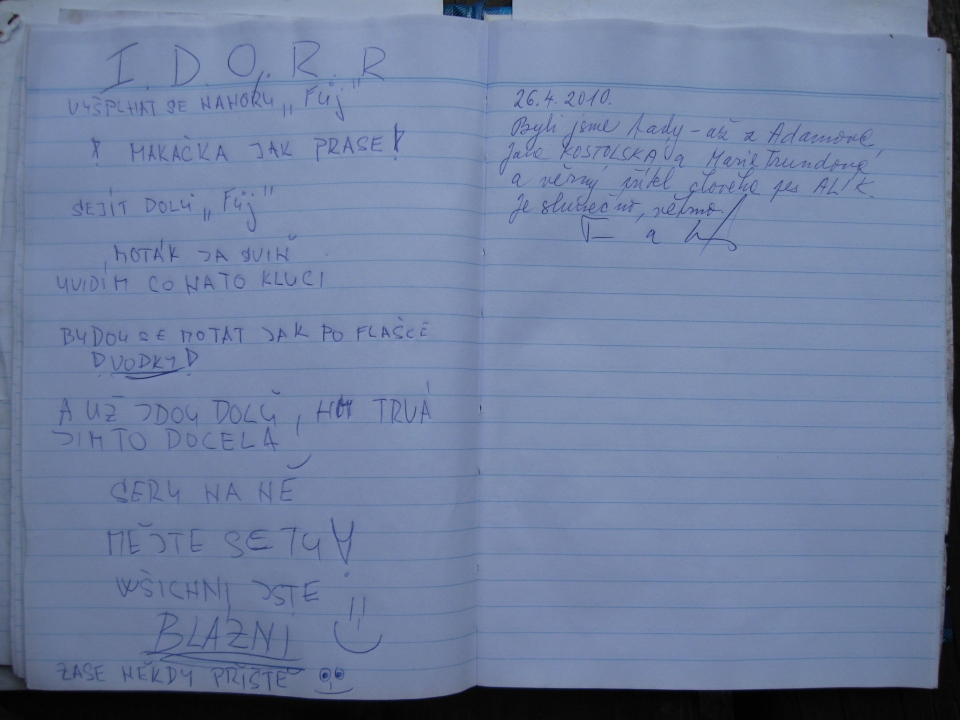 I. D. O. R. R
VYŠPLHAT SE NAHORU „Fůj"
! MAKAČKA JAK PRASE!
SEJÍT DOLŮ „Fůj"
MOTÁK JA SVIŇ
UVIDÍM CO NATO KLUCI
BUDOU SE MOTAT JAK PO FLAŠCE
! VODKY!
A UŽ JDOU DOLŮ, HM TRVÁ
JIM TO DOCELA
SERU NA NĚ
MĚJTE SE TU!
VŠICHNI JSTE
BLÁZNI
ZASE NĚKDY PŘIŠTĚ
26.4.2010.
Byli jsme tady - až z Adamova,
Jana KOSTOLSKÁ a Marie Trundová
a věrný přítel člověka pes ALÍK.
Je slunečno,
a